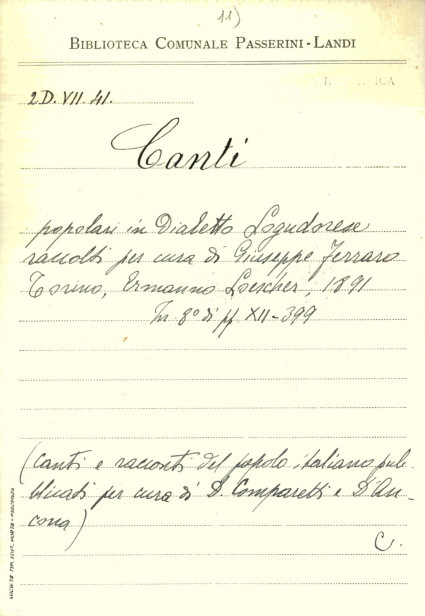 11)
BIBLIOTECA COMUNALE PASSERINI-LANDI
2D. VII. 41.
Canti
popolari in Dialetto Logudorese
raccolti per cura di Giuseppe Ferraro
Torino, Ermanno Loescher, 1891
In 8° di pp XII-399
(Canti e racconti del popolo italiano pub-
blicati per cura di D. Comparetti e D'An-
cona)
C.